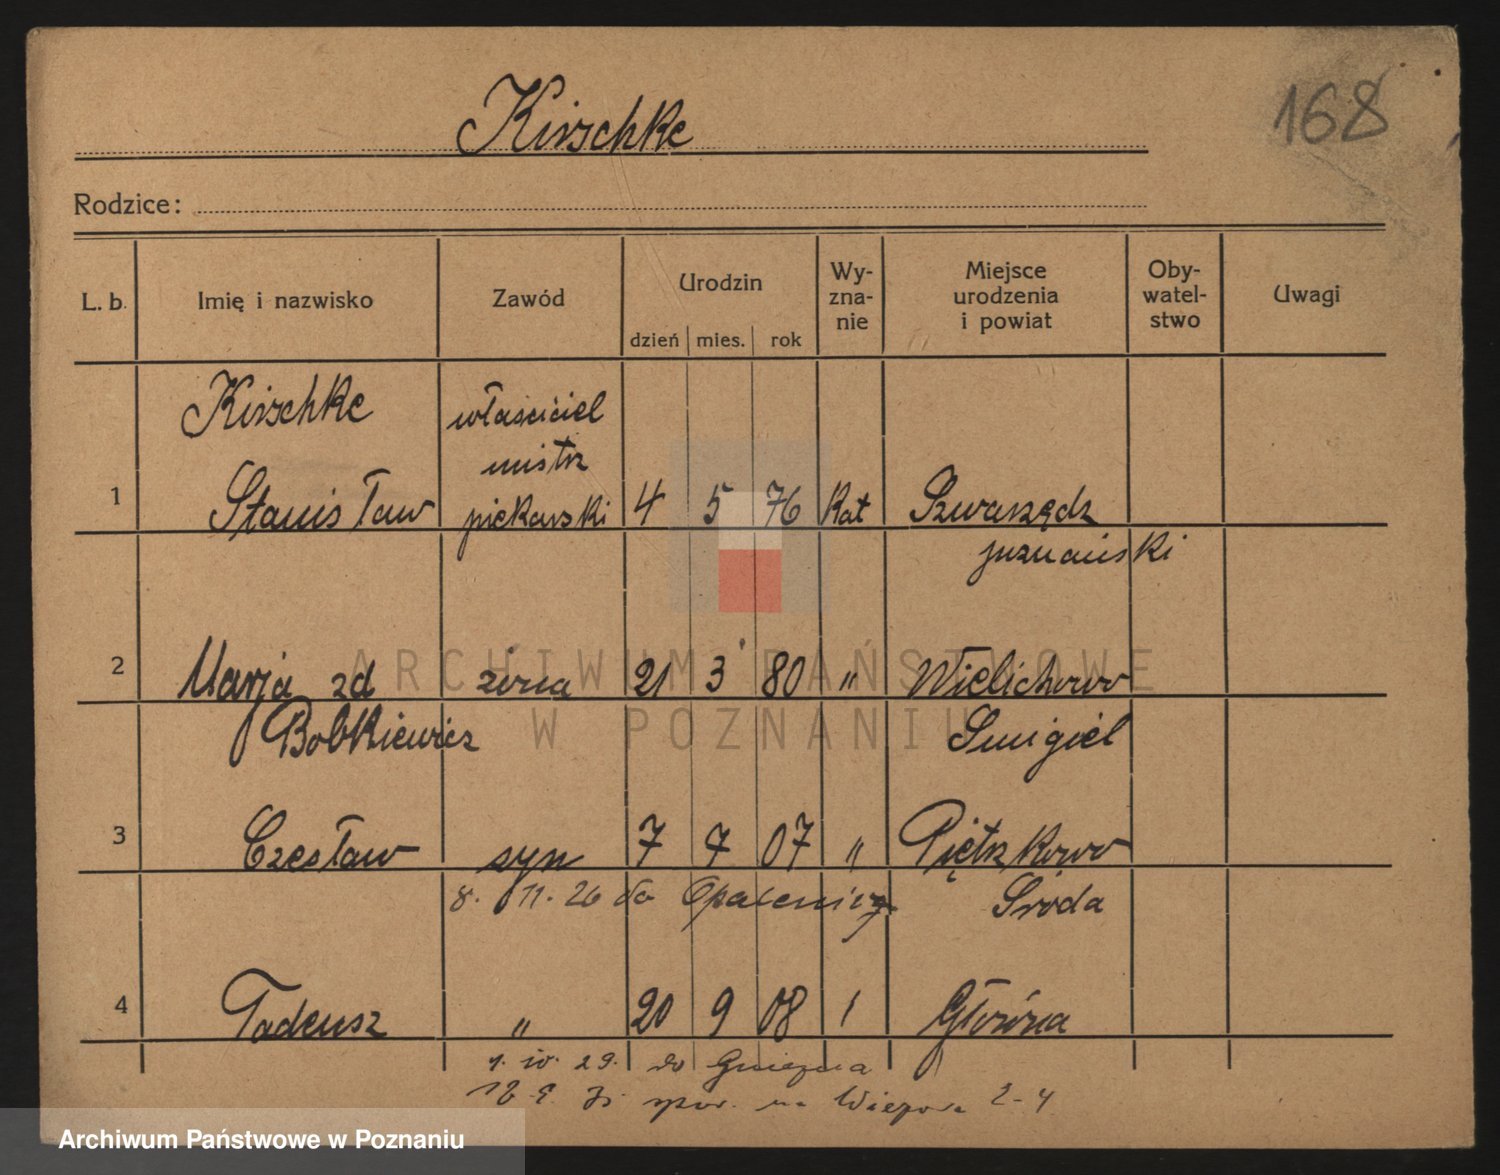 168
Kirschke
Rodzice:
L. b. Imię i nazwisko Zawód Urodzin dzień mies. rok Wy-zna-nie Miejsce urodzenia i powiat Oby-watel-stwo Uwagi
Kirschke właściciel
mistrz
1 Stanisław piekarski 4 5 76 Kat Szwarzędz
poznański
2 Marja zd żona 21 3 80 " Wielichowo
Bobkiewicz Smigiel
3 Czesław syn 7 7 07 " Piętrkowo
8. 11. 26 do Opalenicy Sroda
4 Tadeusz " 20 9 08 Główna
1. IV. 29. do Gniezna
na 2-4
ARCHIWUM PAŃSTWOWE
W POZNANIU
Archiwum Państwowe w Poznaniu